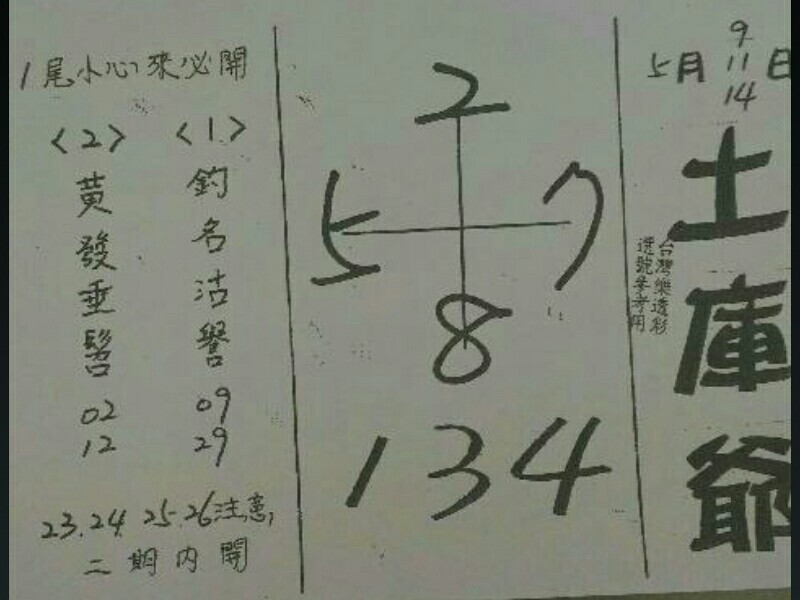 5月9 11 14日
土庫爺
台灣樂透彩
選號參考用
2
5 7
8
1 3 4
1尾小心來必開
〈1〉
釣名沽譽
09
29
〈2〉
黃發垂髫
02
12
23.24. 25.26注意,
二期內開